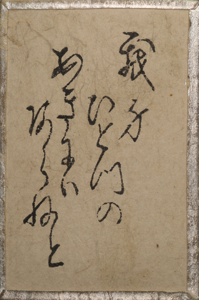 我身
ひとつの
あきには
あらねと